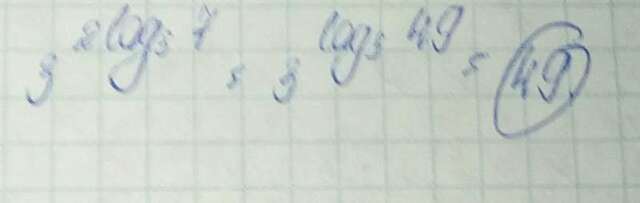 3^{2 log_3 7} = 3^{log_3 49} = 49